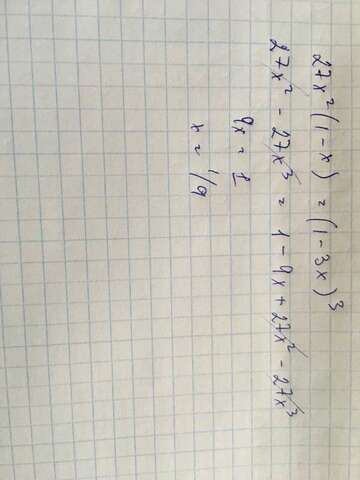 27x²(1-x) = (1-3x)³
27x² - 27x³ = 1 - 9x + 27x² - 27x³
9x = 1
x = 1/9